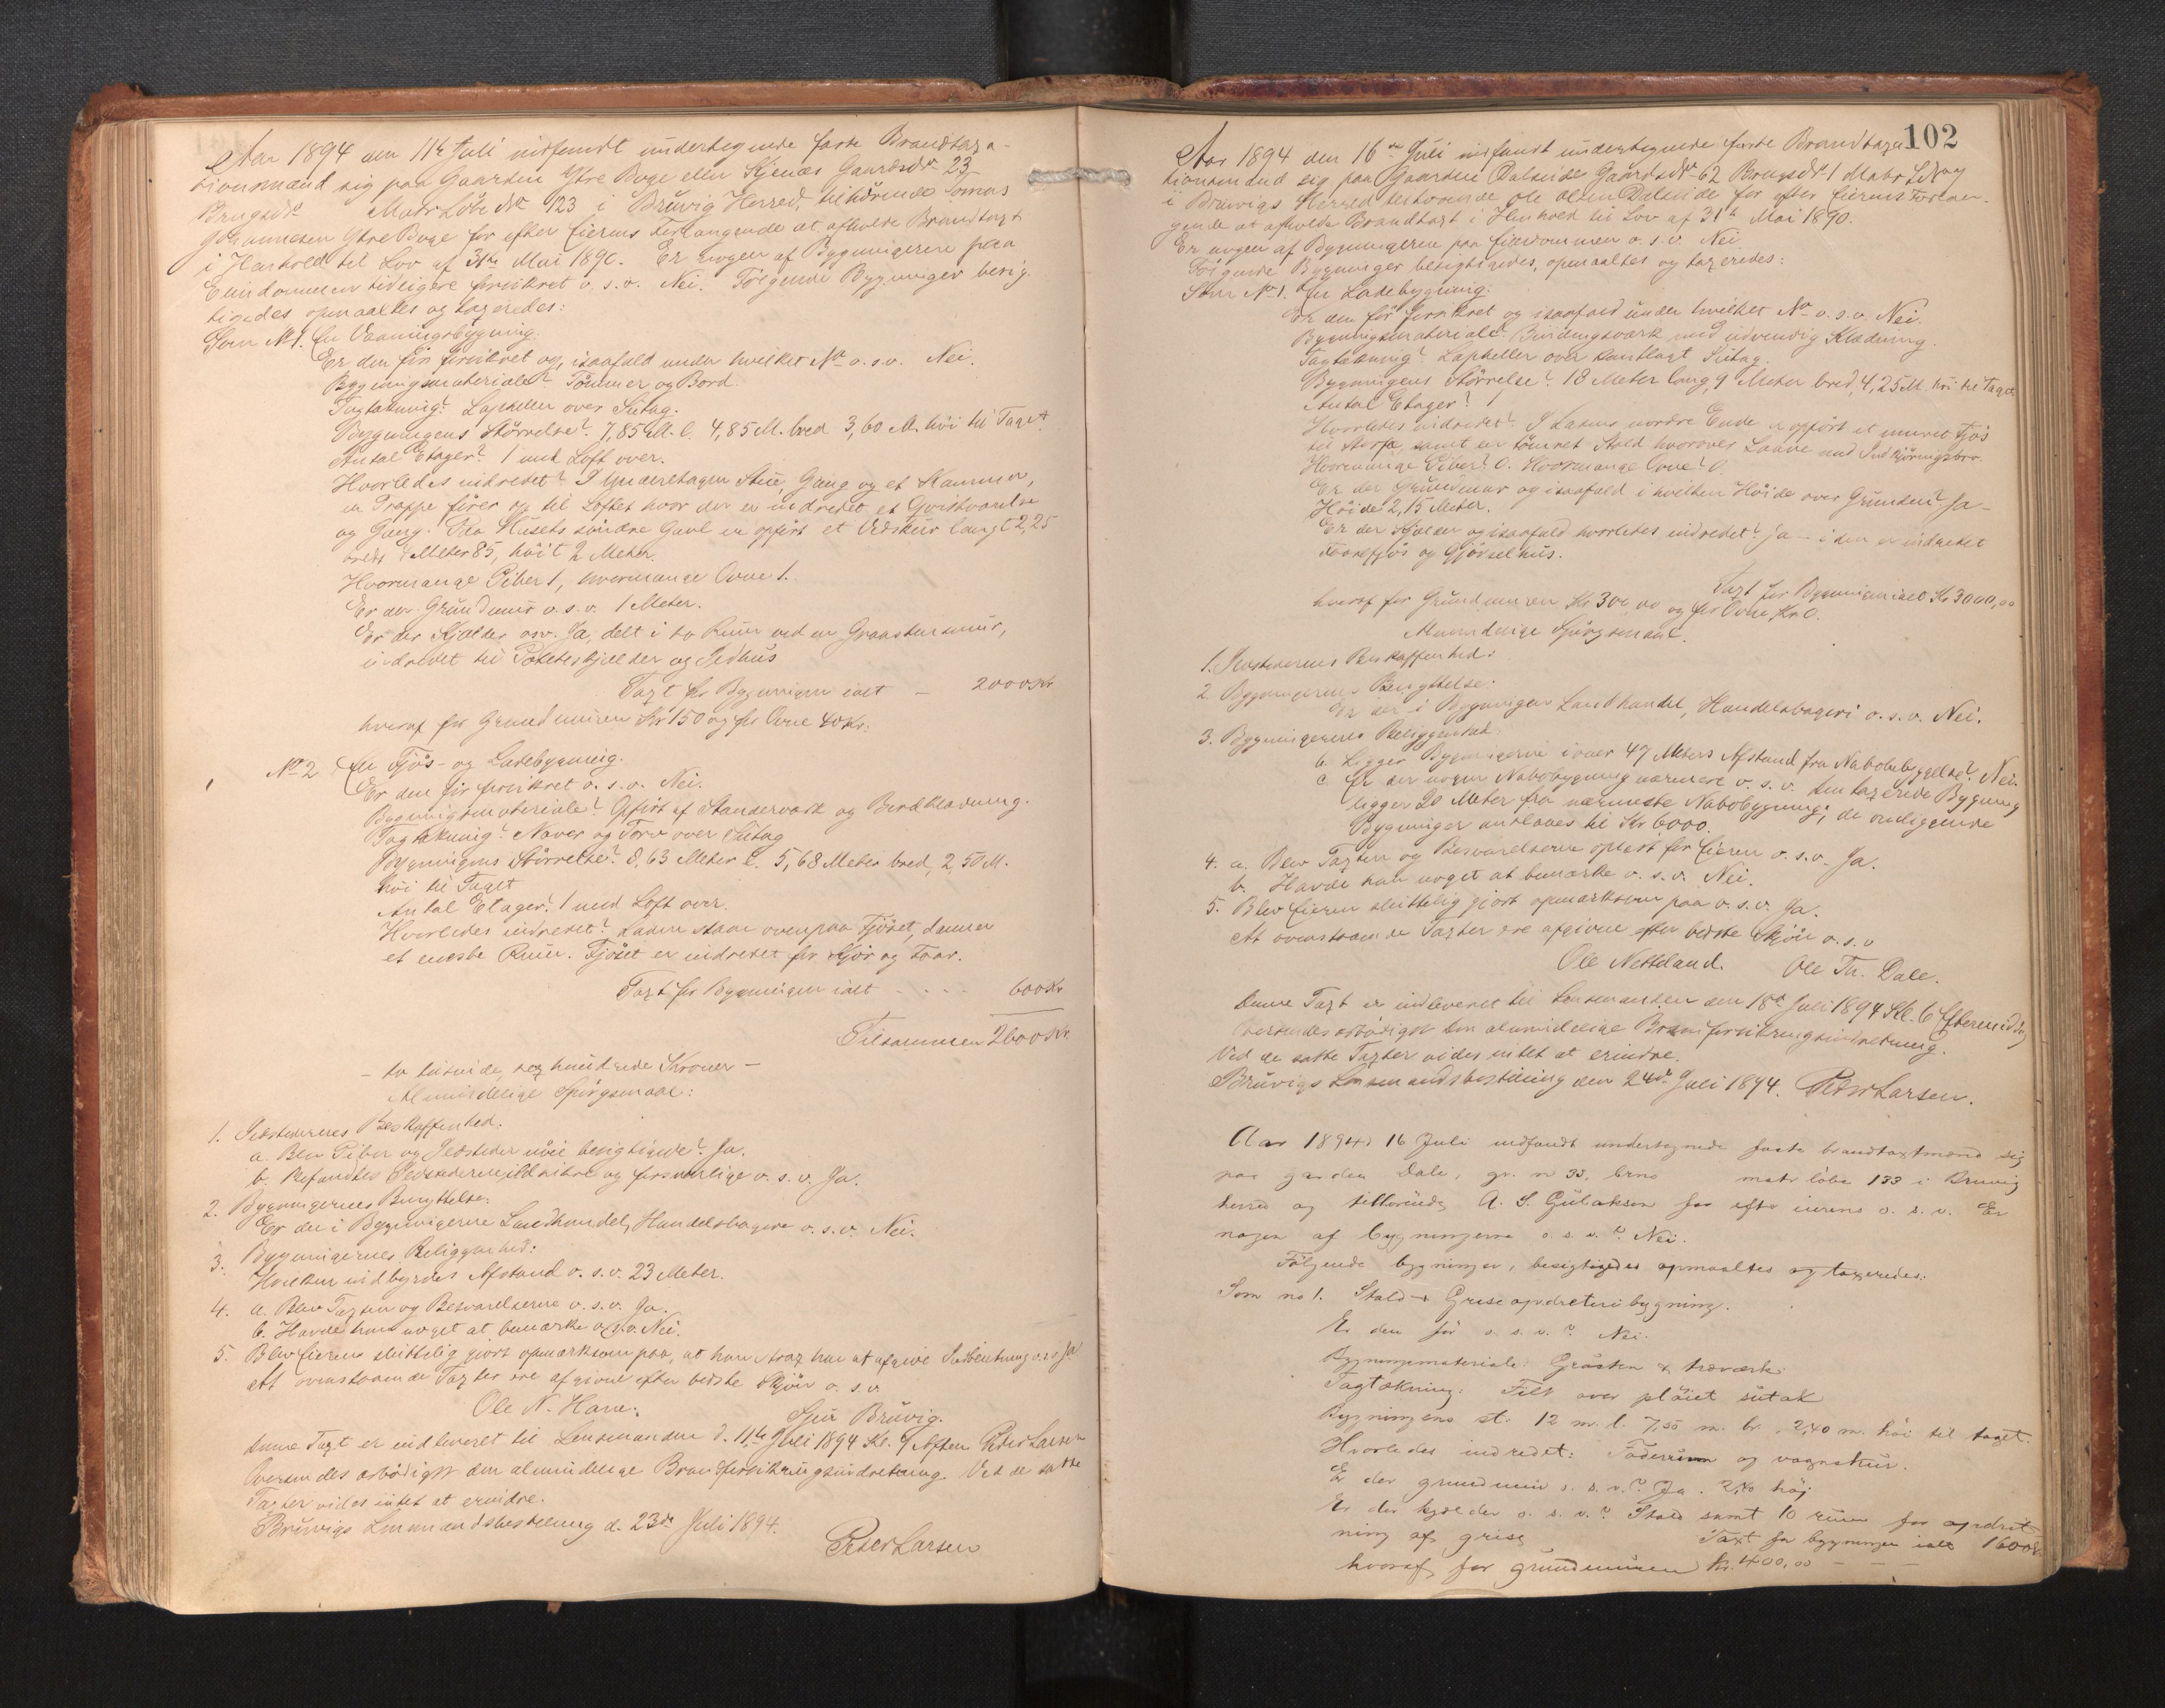 Aar 1894 den 11te Juli indfandt undertegnede faste Brandtaxa-
tionsmænd sig paa Gaarden Ytre Boge eller Skjenæs Gaardsde No 23
Brugsde No Matr Løbe No 123 i Brüvig Herred, tilhörende Tomas
Johannesen Ytre Boge for efter Eierens Forlangende at afholde Brandtaxt
i Henhold til Lov af 31te Mai 1890. Er nogen af Bygningerne paa
Eiendommen tidligere forsikret o. s. v. Nei. Fölgende Bygninger besig-
tigedes opmaaltes og taxeredes:
Som No 1. En Vaaningsbygning.
Er den för forsikret og, isaafald under hvilket No o. s. v. Nei.
Bygningsmateriale? Tömmer og Bord.
Tagtækning? Lapheller over Sütag.
Bygningens Störrelse? 7,85 M. l. 4,85 M. bred 3,60 M. höi til Taget.
Antal Etager? 1 med Loft over.
Hvorledes indredet? I Underetagen Stue, Gang og et Kammer,
en Trappe förer op til Loftet hvor der er indredet et Qvistværelse
og Gang. Paa Husets söndre Gavl er opfört et Vedskür langt 2,25
bredt Meter 85, höit 2 Meter.
Hvormange Piber 1, hvormange Ovne 1.
Er der Grundmür o. s. v. 1 Meter.
Er der Kjælder osv. Ja, delt i to Rüm ved en Graastensmür,
indredet til Poteteskjælder og Ildhus
Taxt for Bygningen ialt — 2000 Kr
hveraf for Grundmuren Kr 150 og for Ovne 40 Kr.
No 2 En Fjös- og Ladebygning.
Er den för forsikret o. s. v. Nei.
Bygningsmateriale? Opfört af Standerværk og Bordklædning.
Tagtækning? Næver og Torv over Sütag
Bygningens Störrelse? 8,63 Meter l. 5,68 Meter bred, 2,50 M.
höi til Taget
Antal Etager? 1 med Loft over.
Hvorledes indredet? Laden staar ovenpaa Fjöset, danner
et eneste Rüm. Fjöset er indredet for Kjör og Faar.
Taxt for Bygningen ialt - - - - 600 Kr
Tilsammen 2600 Kr.
— to tusinde, sex hundrede Kroner —
Almindelige Spörgsmaal:
1. Ildstedernes Beskaffenhed.
a. Blev Piber og Ildsteder nöie besigtigede? Ja.
b. Befandtes Ildstederne ildsikre og forsvarlige o. s. v. Ja.
2. Bygningernes Benyttelse:
Er der i Bygningerne Landhandel, Handelsbageri o. s. v. Nei.
3. Bygningernes Beliggenhed:
Hvilken indbyrdes Afstand o. s. v. 23 Meter.
4. a. Blev Taxten og Besvarelserne o. s. v. Ja.
b. Havde han noget at bemærke o. s. v. Nei.
5. Blev Eieren skriftelig gjort opmærksom paa, at han strax har at afgive Indberetning o.s.v. Ja
At ovenstaaende Taxter ere afgivne efter bedste Skjön o. s. v.
Ole N. Hane. Sjur Brüvig.
Denne Taxt er indleveret til Lensmanden d. 11te Juli 1894 Kl. 9 Aften Peder Larsen
Oversendes ærbödigst den almindelige Brandforsikringsindretning. Ved de satte
Taxter vides intet at erindre.
Brüvigs Lensmandsbestilling d. 23de Juli 1894.
Peder Larsen
102
Aar 1894 den 16de Juli indfandt undertegnede faste Brandtaxa-
tionsmænd sig paa Gaarden Dalseide Gaardsde No 62 Brugsde No 1 Matr Lb No
i Brüvigs Herred tilhörende Ole Olsen Dalseide for efter Eierens Forlan-
gende at afholde Brandtaxt i Henhold til Lov af 31te Mai 1890.
Er nogen af Bygningerne paa Eiendommen o. s. v. Nei
Fölgende Bygninger besigtigedes, opmaaltes og taxeredes:
Som No 1. En Ladebygning.
Er den för forsikret og isaafald under hvilket No o. s. v. Nei.
Bygningsmateriale? Bindingsværk med udvendig Klædning.
Tagtækning? Lapheller over kantlagt Sütag.
Bygningens Störrelse? 18 Meter lang, 9 Meter bred, 4,25 M. höi til Taget
Antal Etager? 1
Hvorledes indredet? I Ladens nordre Ende er opfört et muret Fjös
til Storfæ, samt en tömret Stald hvorover Laave med Indkjöringsbro.
Hvormange Piber? 0. Hvormange Ovne? 0.
Er der Grundmur og isaafald i hvilken Höide over Grunden? Ja —
Höide 2,15 Meter.
Er der Kjælder og isaafald hvorledes indredet? Ja — i den er indredet
Faarefjös og Gjödselhus.
Taxt for Bygningen ialt Kr 3000,00
hveraf for Grundmuren Kr 300,00 og for Ovne Kr 0.
Almindelige Spörgsmaal.
1. Ildstedernes Beskaffenhed:
2. Bygningernes Benyttelse:
Er der i Bygningen Landhandel, Handelsbageri o. s. v. Nei.
3. Bygningernes Beliggenhed:
b. Ligger Bygningerne i over 47 Meters Afstand fra Nabobebyggelse? Nei.
c Er der nogen Nabobygning nærmere o. s. v. Den taxerede Bygning
ligger 20 Meter fra nærmeste Nabobygning; de omliggende
Bygninger ansloaes til Kr 6000.
4. a. Blev Taxten og Besvarelserne oplæst for Eieren o. s. v. Ja.
b. Havde han noget at bemærke o. s. v. Nei.
5. Blev Eieren skriftelig gjort opmærksom paa o. s. v. Ja.
At ovenstaaende Taxter ere afgivne efter bedste Skjön o. s. v
Ole Netteland. Ole Th. Dale.
Denne Taxt er indleveret til Lensmanden den 18de Juli 1894 Kl. 6 Eftermidd.
Oversendes ærbödigst den almindelige Brandforsikringsindretning.
Ved de satte Taxter vides intet at erindre.
Brüvigs Lensmandsbestilling den 24de Juli 1894. Peder Larsen.
Aar 1894 16 Juli indfandt undertegnede faste brandtaxtmænd sig
paa garden Dale, gr. n 33, brno matr löbe 133 i Bruvig
herred og tilhörende A. S. Gülaksen for efter eierens o. s. v. Er
nogen af bygningerne o. s. v.? Nei.
Fölgende bygninger, besigtigedes opmaaltes og taxeredes:
Som no 1. Stald & Griseopdretteri bygning.
Er den för o. s. v.? Nei.
Bygningsmateriale: Gråsten & træværk
Tagtækning: Filt over plöiet sütak
Bygningens st: 12 m. l. 7,50 m. br. 2,40 m. höi til taget.
Hvorledes indredet: Föderum og vognskur.
Er der grundmür o. s. v.? Ja. 2,40 höj
Er der kjælder o. s. v.? Stald samt 10 rüm for opdræt-
ning af grise Taxt for bygningen ialt 1600 kr
hvoraf for grundmüren kr. 400,00 — — —